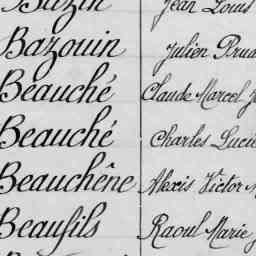 Bazin Jean Louis
Bazouin Julien Prud
Beauché Claude Marcel J
Beauché Charles Lucie
Beauchêne Alexis Victor
Beaufils Raoul Marie